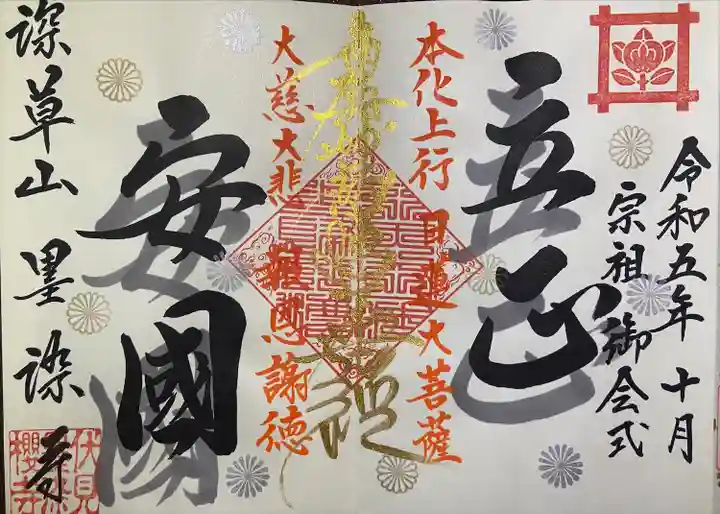 令和五年 十月
宗祖御会式
立正
本化上行 日蓮大菩薩
南無妙法蓮華経
大慈大悲 報恩謝徳
安國
深草山 墨染寺
伏見
墨染
櫻寺